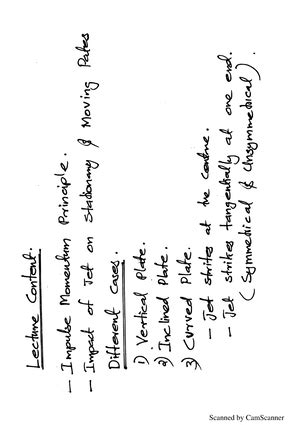 Lecture Content.
- Impulse Momentum Principle.
- Impact of Jet on Stationary & Moving Plates
Different Cases.
1) Vertical Plate.
2) Inclined Plate.
3) Curved Plate.
- Jet strikes at the centre.
- Jet strikes tangentially at one end.
(Symmedical & Unsymmedical).
Scanned by CamScanner